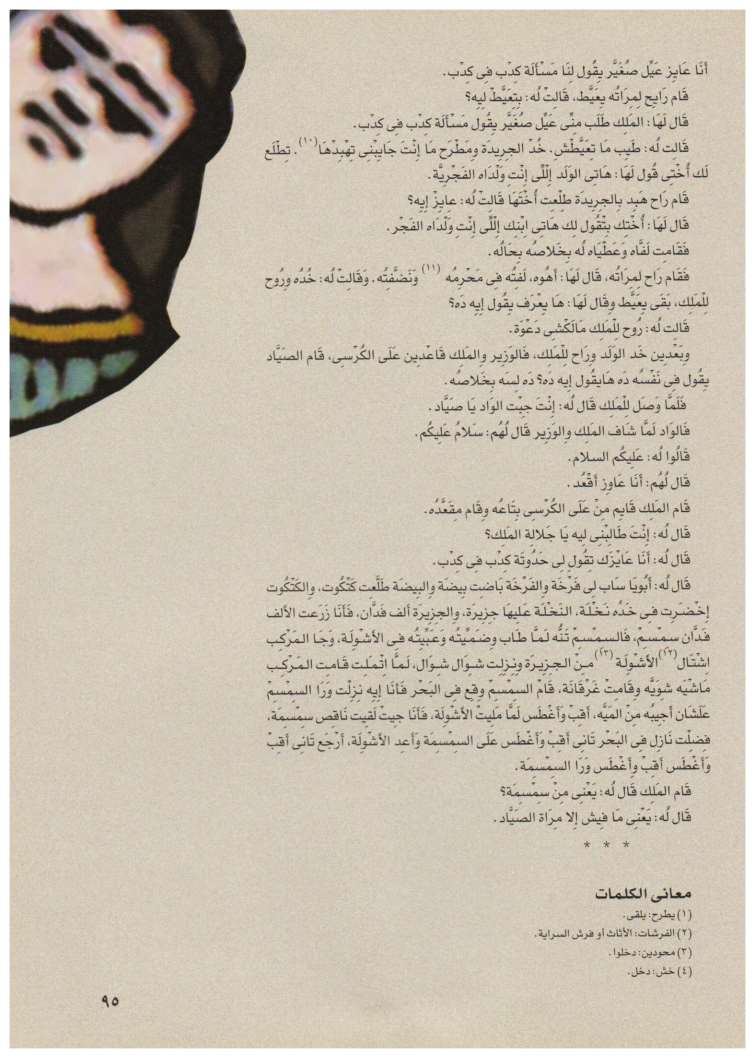 أنَا عَايِز عَيِّل صُغَيَّر يقُول لنَا مَسْألَة كدْب فى كدْب.
قَام رَايح لمرَاتُه يعَيَّط، قَالتْ لُه: بتِعَيَّطْ ليه؟
قَال لَهَا: المَلك طَلَب منِّى عَيِّل صُغَيَّر يقُول مَسْألَة كدْب فى كدْب.
قَالت لُه: طَيب مَا تعَيَّطْش. خُدْ الجريدَة ومَطْرَح مَا إنْتَ جَايبْنى تهْبدْهَا(١٠). تطْلَع
لَك أُخْتى قُول لَهَا: هَاتى الوَلَد إللِّى إنْت وَلْدَاه الفَجْريَّة.
قَام رَاح هَبد بالجريدَة طلْعت أُخْتَهَا قَالتْ لُه: عايزْ إيه؟
قَال لَهَا: أُخْتك بتْقُول لك هَاتى ابْنك إللِّى إنْت وَلْدَاه الفَجْر.
فقَامت لَفَّاه وَعَطْيَاه لُه بخَلاصُه بحَالُه.
فقَام رَاح لمرَاتُه، قَال لَهَا: أهُوه، لَفتُه فى مَحْرمُه (١١) وَنَضَّفتُه. وَقَالتْ لُه: خُدُه ورُوح
للْمَلك، بَقَى يعَيَّط وقَال لَهَا: هَا يعْرَف يقُول إيه دَه؟
قَالت لُه: رُوح للْمَلك مَالَكْشى دَعْوَة.
وبَعْدين خَد الوَلَد ورَاح للْمَلك، فَالوَزير والمَلك قَاعْدين عَلَى الكُرْسى، قَام الصَيَّاد
يقُول فى نَفْسُه دَه هَايقُول إيه دَه؟ دَه لسَه بخَلاصُه.
فَلَمَّا وَصَل للْمَلك قَال لُه: إنْتَ جبْت الوَاد يَا صَيَّاد.
فَالوَاد لَمَّا شَاف المَلك والوَزير قَال لُهُم: سَلامُ عَليكُم.
قَالُوا لُه: عَليكُم السلام.
قَال لُهُم: أنَا عَاوز أقْعُد.
قَام المَلك قَايم منْ عَلَى الكُرْسى بتَاعُه وقَام مقَعَّدُه.
قَال لُه: إنْتَ طَالبْنى ليه يَا جَلالة المَلك؟
قَال لُه: أنَا عَايزَك تقُول لى حَدُوتَة كدْب فى كدْب.
قَال لُه: أبُويَا سَاب لى فَرْخَة والفَرْخَة بَاضت بيضَة والبيضَة طَلَّعت كَتْكُوت، والكَتْكُوت
إخْضَرت فى خَدُه نَخْلَة، النَخْلَة عَليهَا جزيرَة، والجزيرَة ألف فَدَّان، فَأنَا زَرَعت الألف
فَدَّان سمْسمْ، فَالسمْسمْ تَنُّه لَمَّا طَاب وضَمِّيتُه وعَبِّيتُه فى الأشْولَة، وَجَا المَرْكب
اشْتَال(٢٦)الأشْولَة (٢٣)منْ الجزيرَة ونزلت شوَال شوَال، لَمَّا اتْمَلت قَامت المَرْكب
مَاشْيَه شويَّه وقَامتْ غَرْقَانَة، قَامْ السمْسمْ وقع فى البَحْر فَأنَا إيه نزلْت وَرَا السمْسمْ
عَلَشَان أجيبُه منْ المَيَّه، أقبْ وَأغْطَس لَمَّا مَليتْ الأشْولَة، فَأنَا جيتْ لَقيت نَاقص سمْسمَة،
فضلْت نَازل فى البَحْر تَانى أقبْ وَأغْطَس عَلَى السمْسمَة وَأعد الأشْولَة، أرْجَع تَانى أقبْ
وَأغْطَس أقبْ وأغْطَس وَرَا السمْسمَة.
قَام المَلك قَال لُه: يَعْنى منْ سمْسمَة؟
قَال لُه: يَعْنى مَا فيش إلا مرَاة الصَيَّاد.
* * *
معانى الكلمات
(١) يطرح: يلقى.
(٢) الفرشات: الأثاث أو فرش السراية.
(٣) محودين: دخلوا.
(٤) خش: دخل.
٩٥